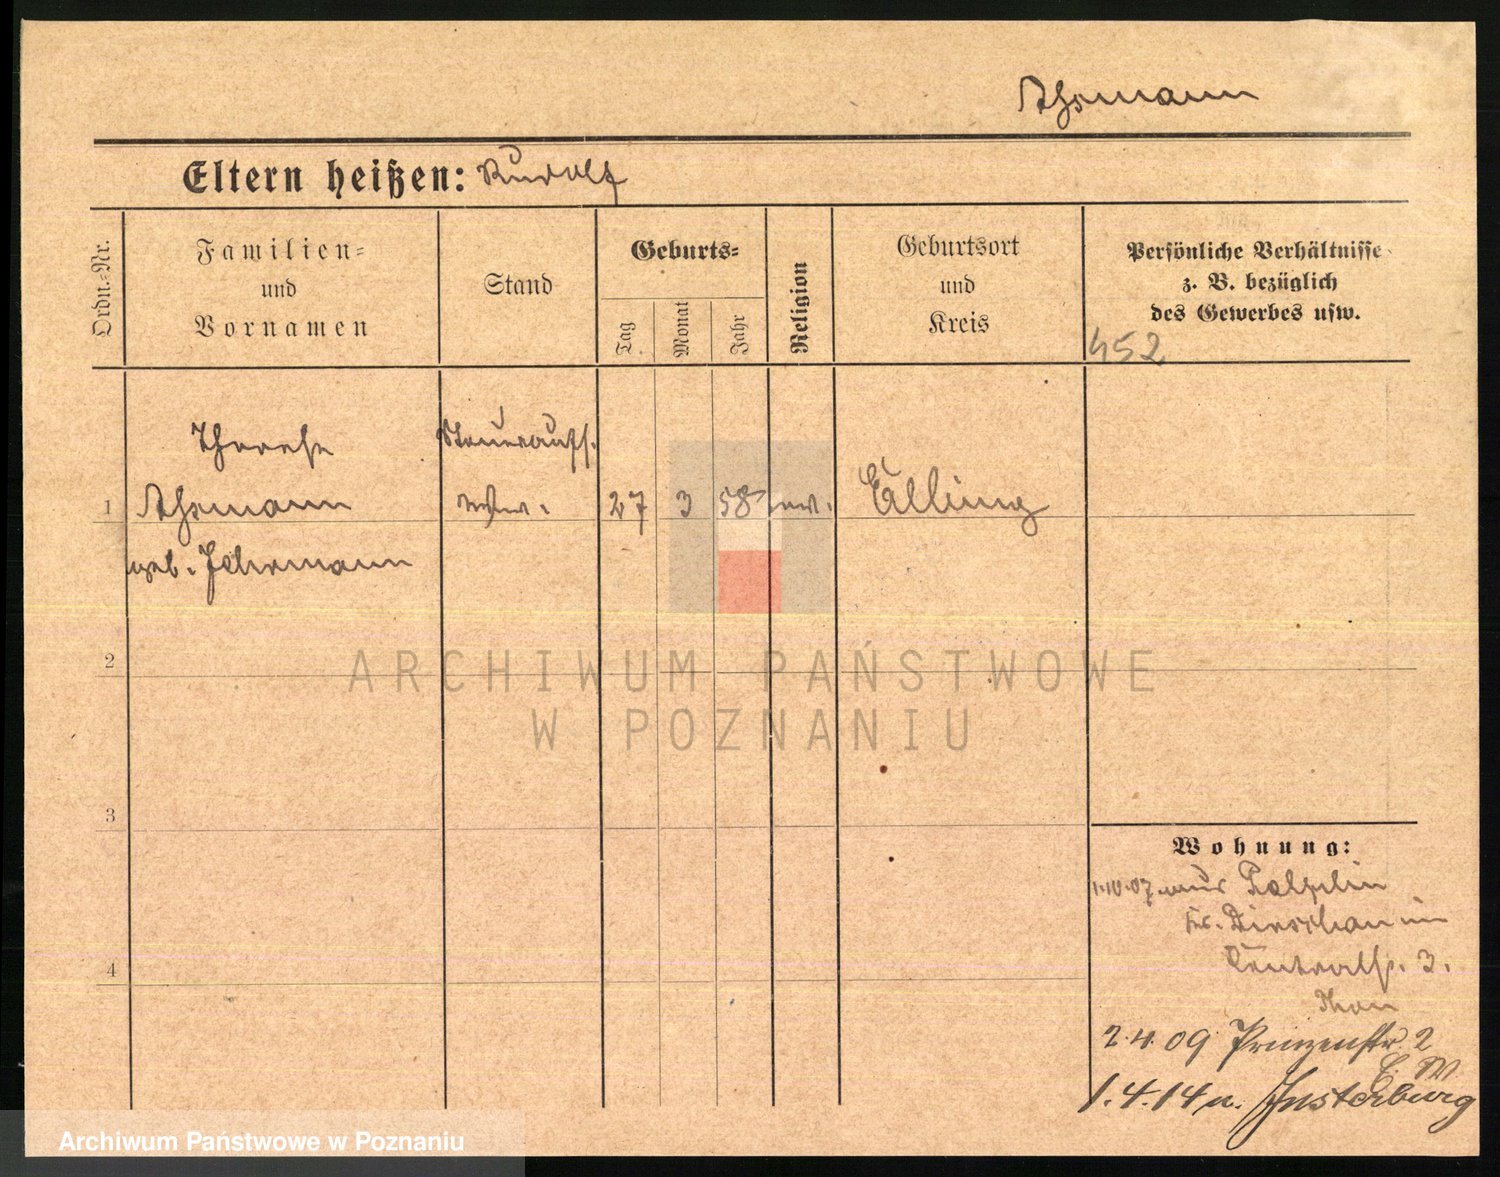 Ahrmann
Eltern heißen: Rudolf
Ordn.-Nr.
Familien-
und
Vornamen
Stand
Geburts-
Tag
Monat
Jahr
Religion
Geburtsort
und
Kreis
Persönliche Verhältnisse
z. B. bezüglich
des Gewerbes usw.
452
Therese
Steueraufs.
1 Ahrmann Wwe. 27 3 58 ev. Elbing
geb.
2
3
4
Wohnung:
1.10.07 aus Pelplin
Kr. Dirschau in
3.
2.4.09 Prinzenstr. 2
1.4.14 n. Insterburg
ARCHIWUM PAŃSTWOWE
W POZNANIU
Archiwum Państwowe w Poznaniu